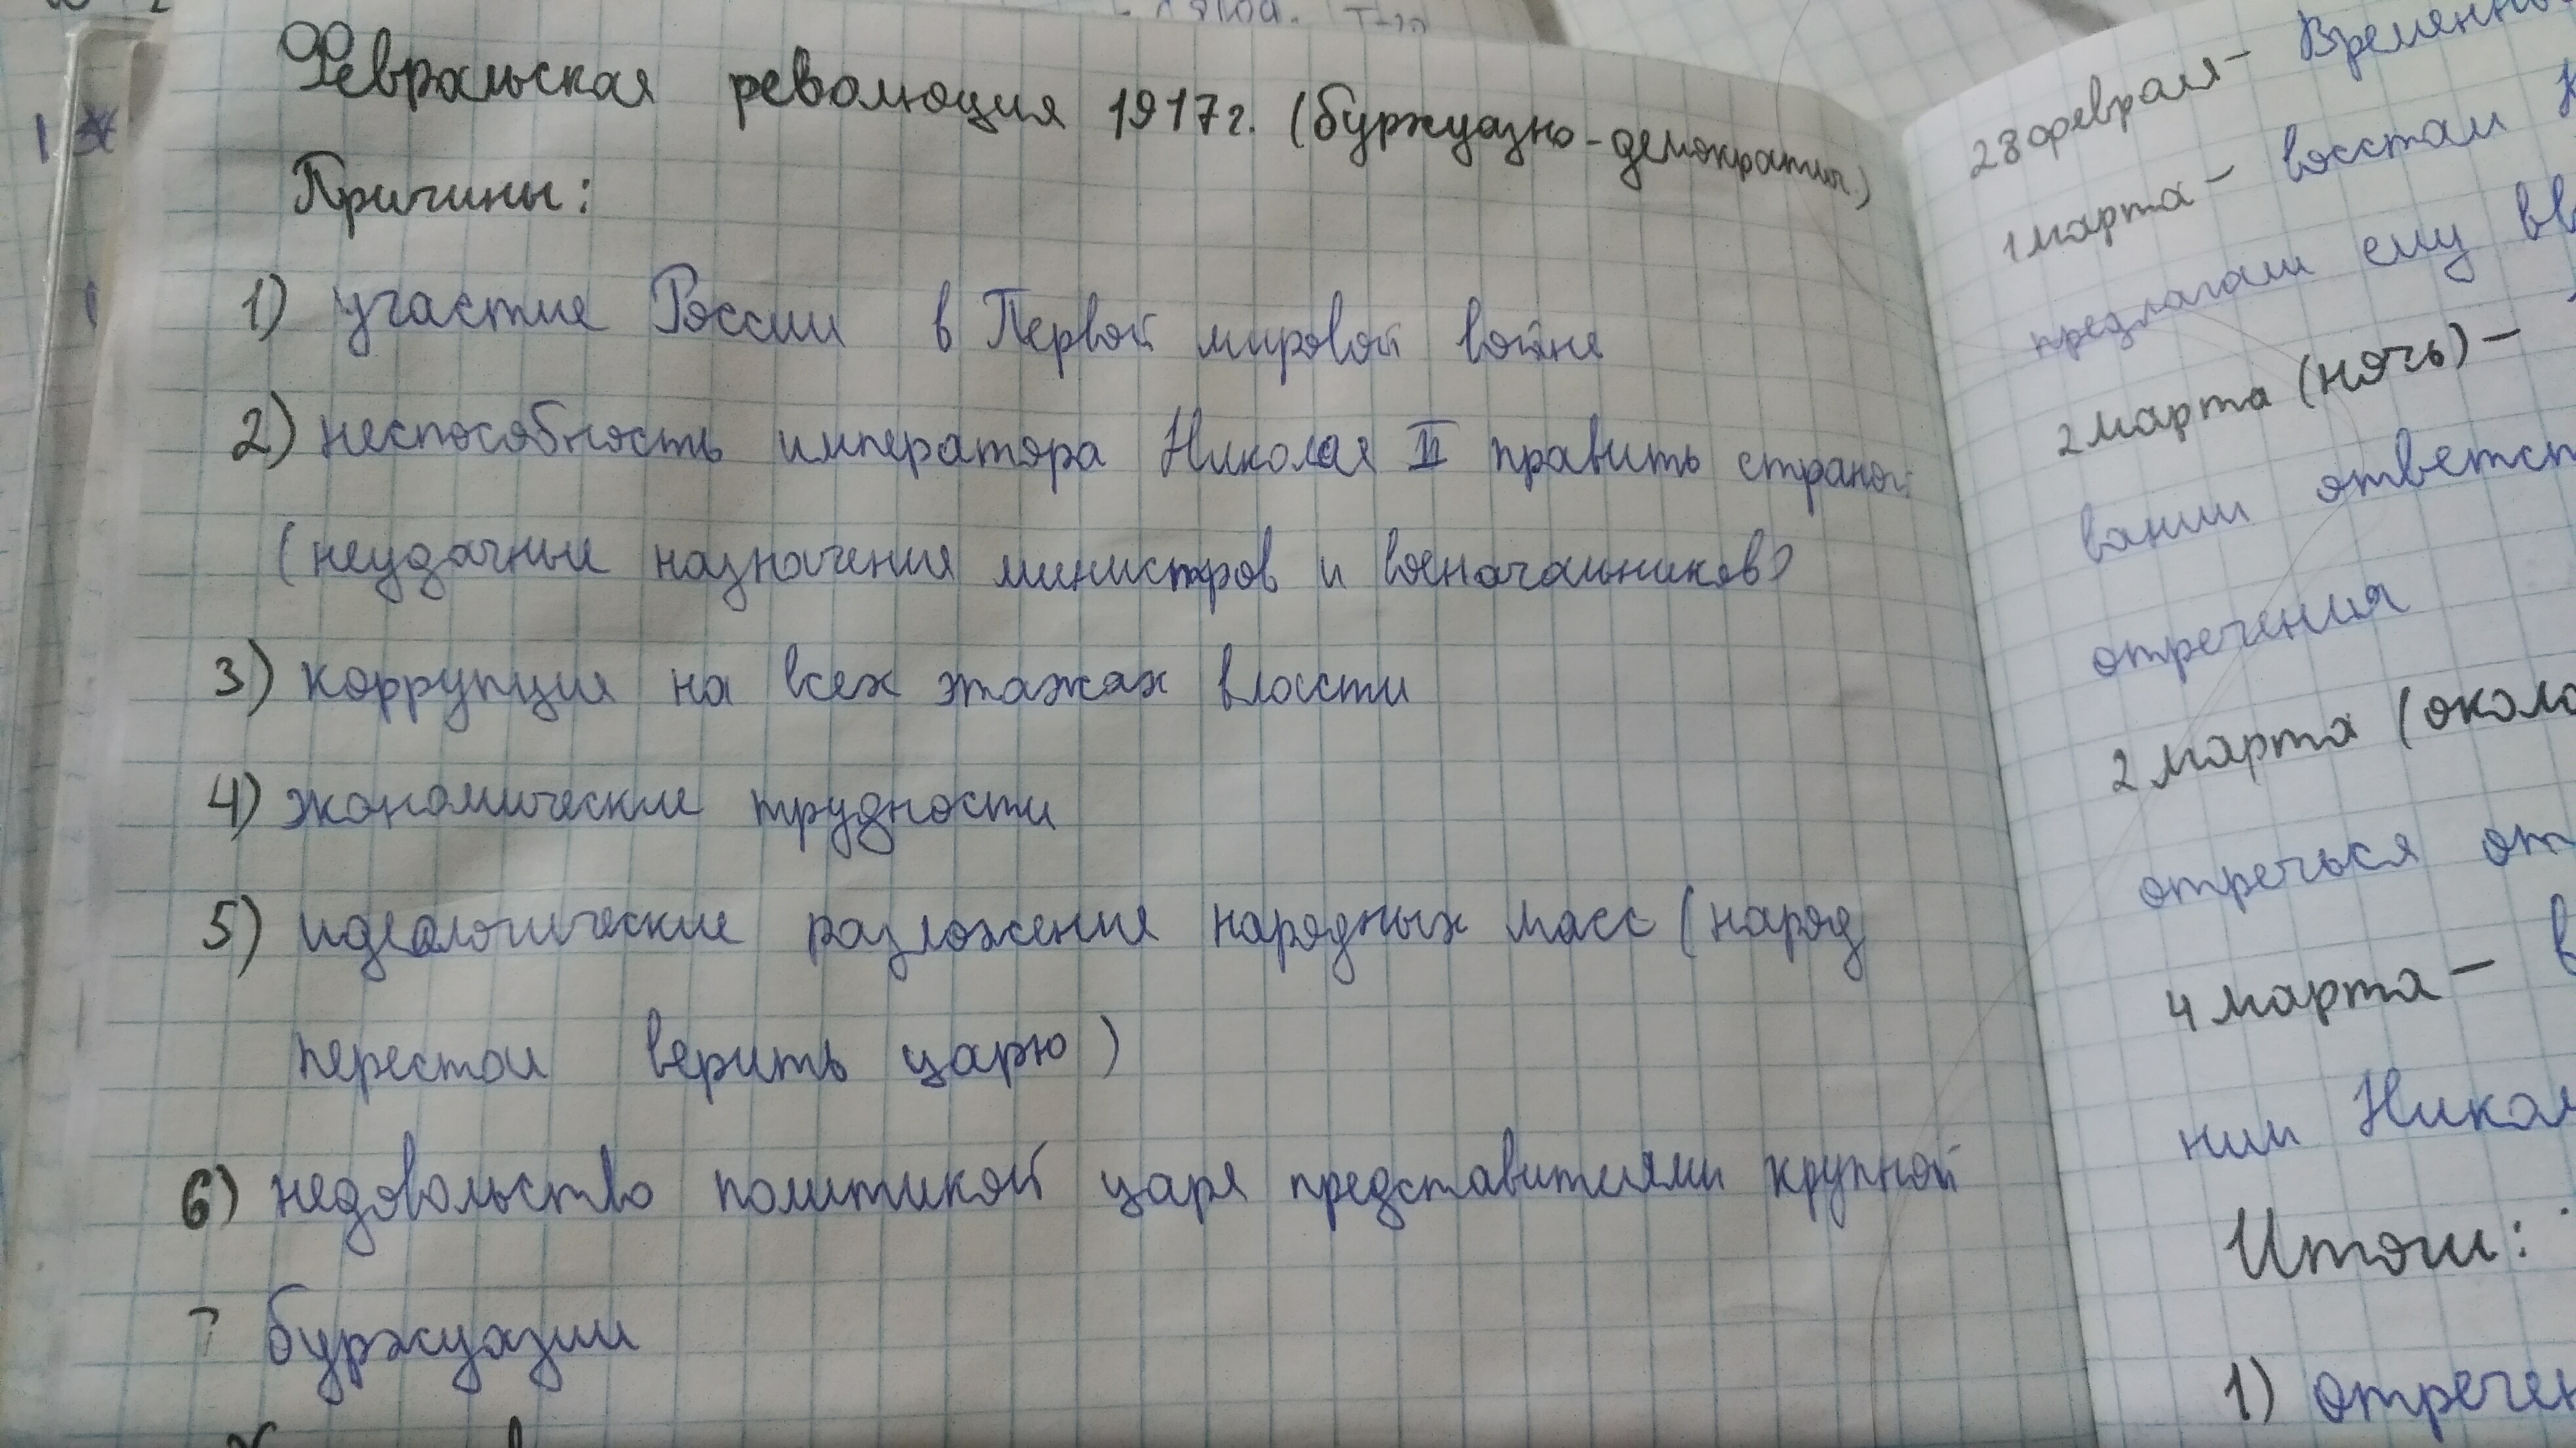 Февральская революция 1917г. (буржуазно-демократич.)
Причины:
1) участие России в Первой мировой войне
2) неспособность императора Николая II править страной
(неудачные назначения министров и военачальников)
3) коррупция на всех этажах власти
4) экономические трудности
5) идеологические разложение народных масс (народ
перестал верить царю)
6) недовольство политикой царя представителями крупной
буржуазии
28 февраля - Временно
1 марта - восстали
предлагали ему вв
2 марта (ночь) -
вании ответст
отречения
2 марта (около
отречься от
4 марта - в
нии Никол
Итоги:
1) отречен